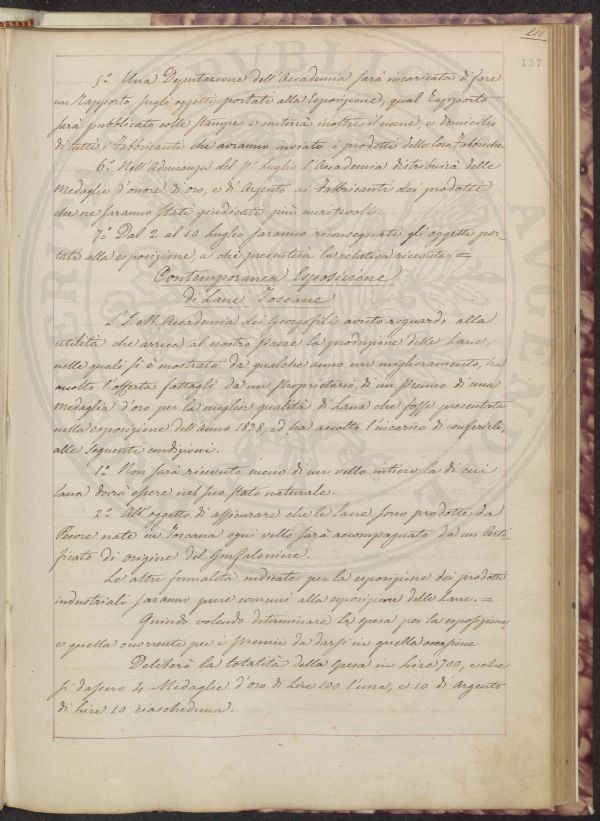 111
107
5.° Una Deputazione dell'Accademia sarà incaricata di fare
un Rapporto sugli oggetti portati alla Esposizione, qual Rapporto
sarà pubblicato colle stampe e conterrà inoltre il nome, e domicilio
di tutti i Fabbricanti che avranno inviato i prodotti delle loro Fabbriche.
6.° Nell'Adunanza del 1.° Luglio l'Accademia distribuirà delle
Medaglie d'onore di oro, e d'Argento ai Fabbricanti dei prodotti
che ne saranno stati giudicati più meritevoli.
7.° Dal 2 al 10 Luglio saranno riconsegnati gli oggetti por-
tati alla esposizione, a chi presenterà la relativa ricevuta =
Contemporanea Esposizione
di Lane Toscane
L'I. e R. Accademia dei Georgofili avuto riguardo alla
utilità che arreca al nostro Paese la produzione delle Lane,
nelle quali si è mostrato da qualche anno un miglioramento, ha
accolto l'offerta fattagli da un Proprietario, di un Premio di una
Medaglia d'oro per la miglior qualità di Lana che fosse presentata
nella esposizione dell'Anno 1838, ed ha accolto l'incarico di conferirlo,
alle seguenti condizioni.
1.° Non sarà ricevuto meno di un vello intiero la di cui
lana dovrà essere nel suo stato naturale.
2.° All'oggetto di assicurare che le lane sono prodotte da
Pecore nate in Toscana ogni vello sarà accompagnato da un Certi
ficato di origine del Gonfaloniere.
Le altre formalità indicate per la esposizione dei prodotti
industriali saranno pure comuni alla esposizione delle Lane. =
Quindi volendo determinare la spesa per la esposizione,
e quella occorrente per i premii da darsi in quella occasione
Deliberò la totalità della spesa in Lire 700, e che
si dassero 4 Medaglie d'oro di Lire 100 l'una, e 10 di Argento
di Lire 10 ciascheduna.